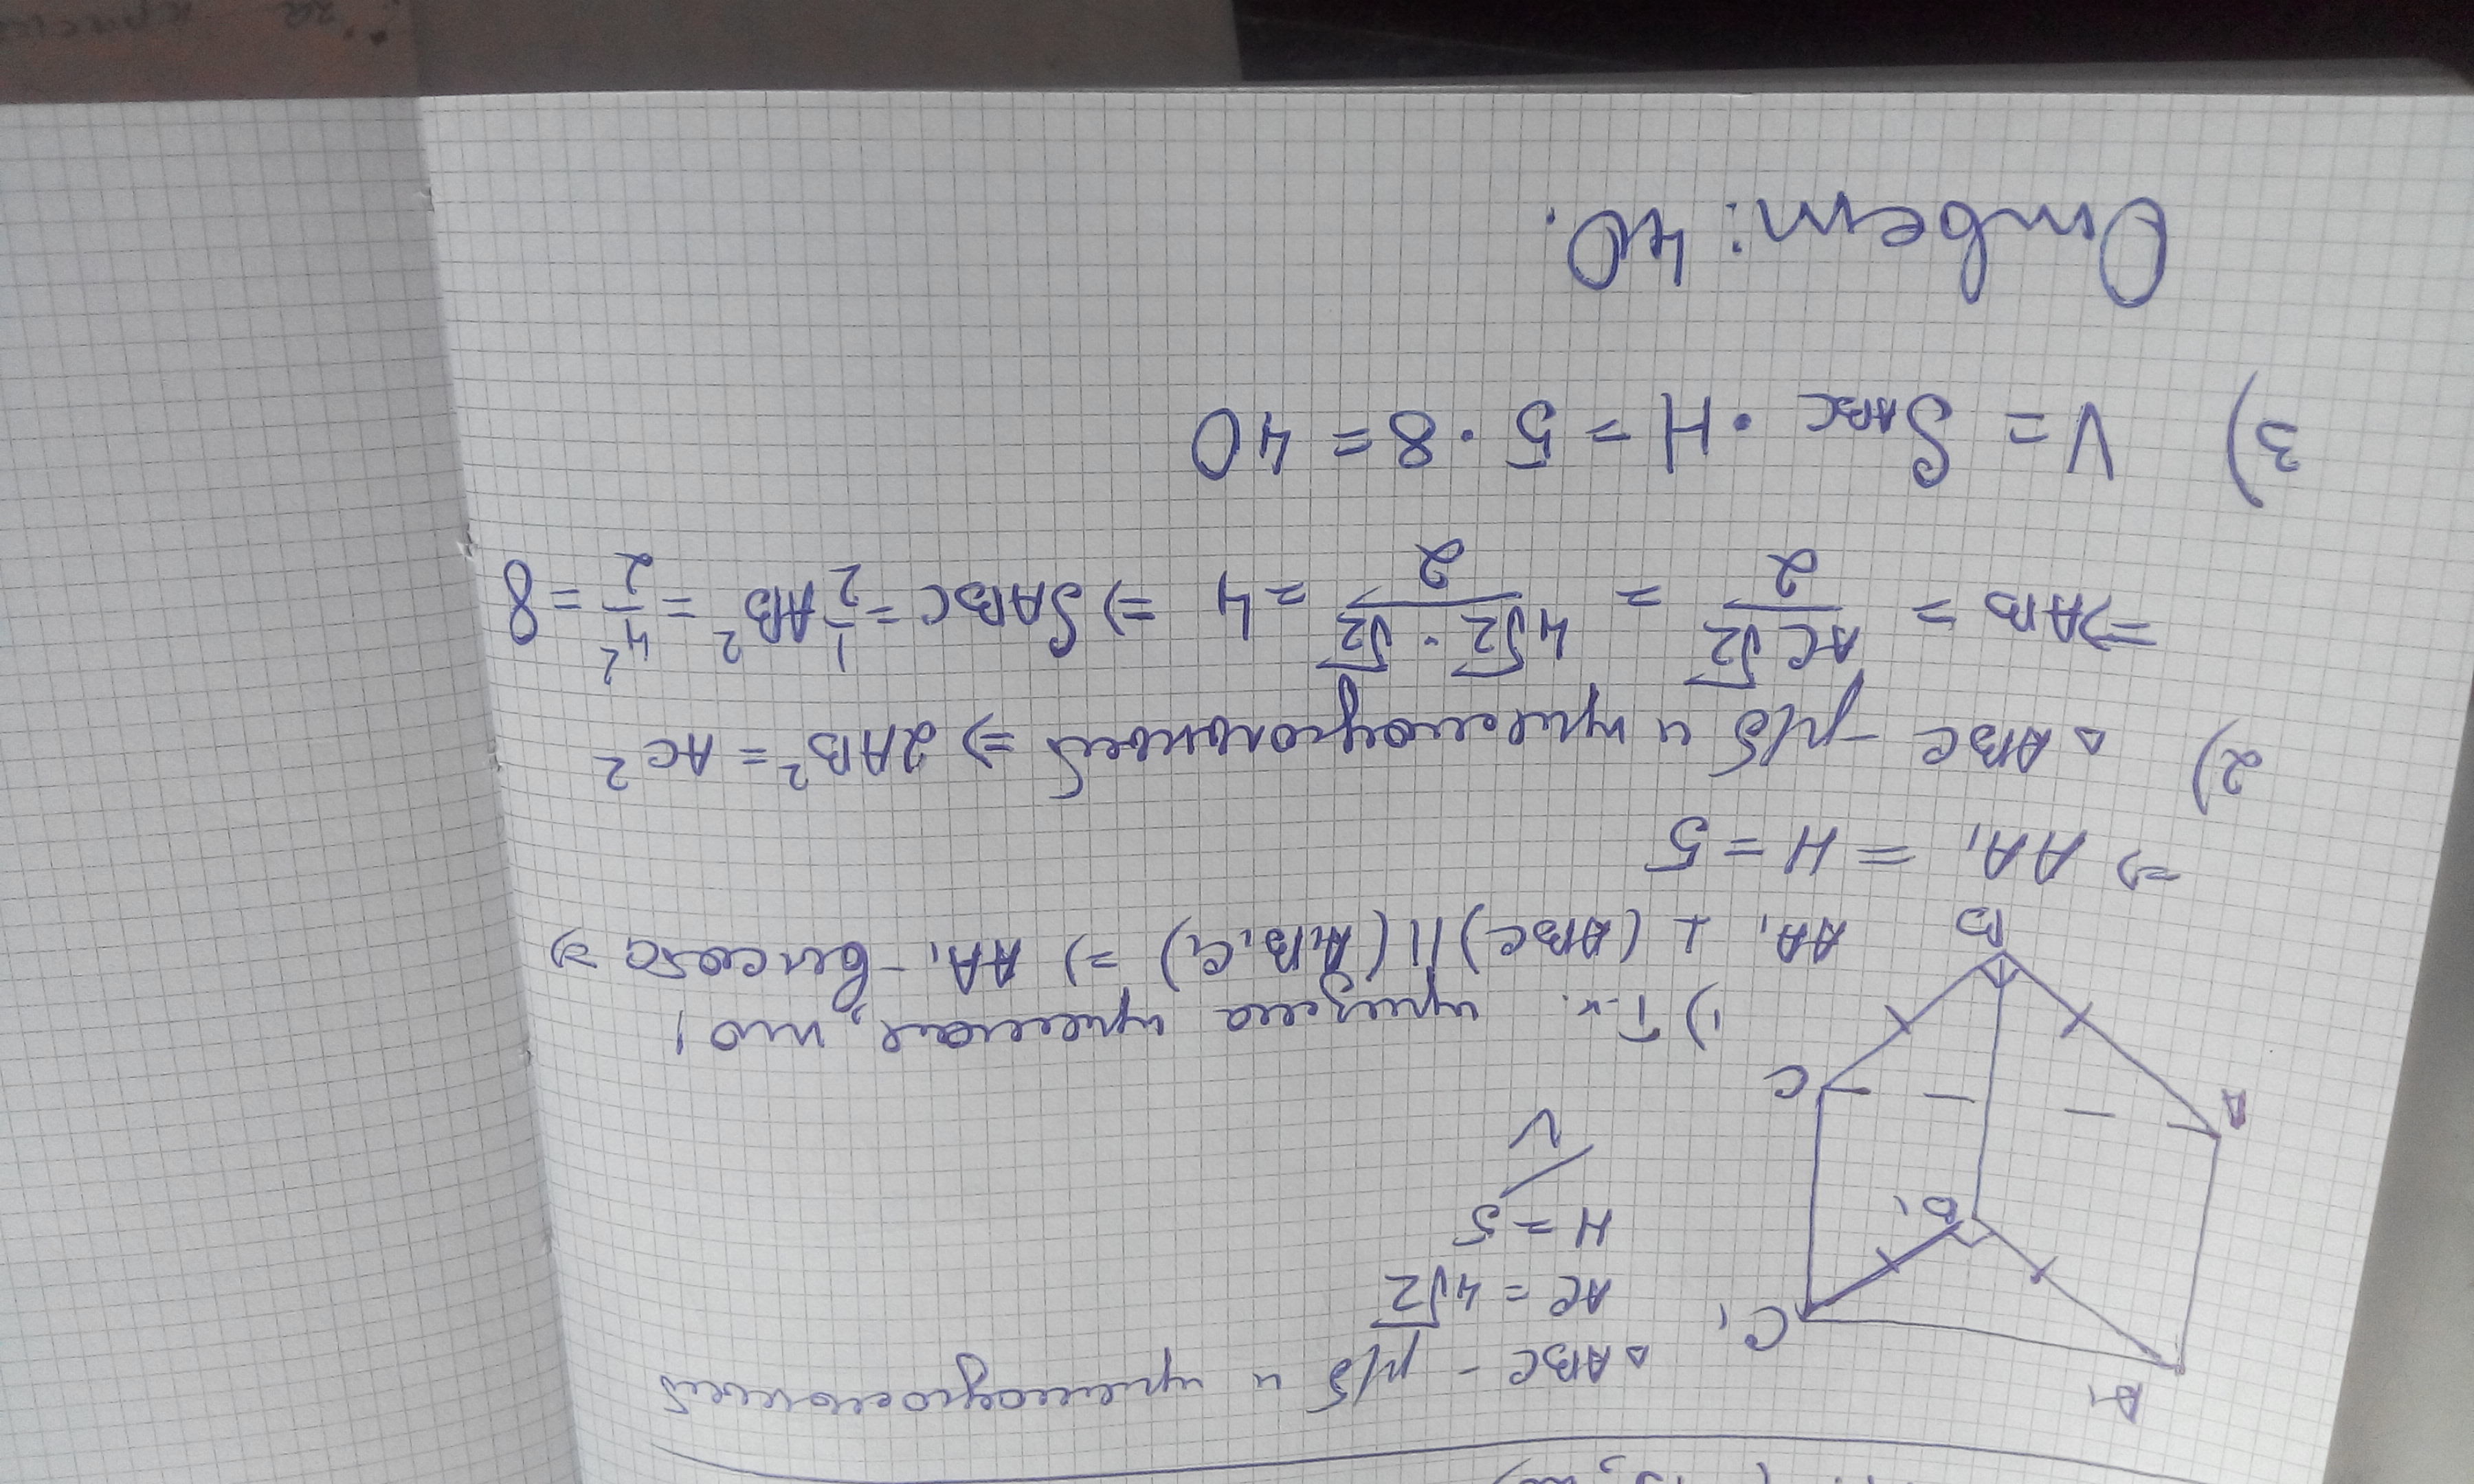 △ABC - р/б и прямоугольный
AC = 4√2
H = 5
V
A₁
C₁
B₁
A
C
B
1) Т.к. призма прямая, то!
AA₁ ⊥ (ABC) || (A₁B₁C₁) ⇒ AA₁ - высота ⇒
⇒ AA₁ = H = 5
2) △ABC - р/б и прямоугольный ⇒ 2AB² = AC²
⇒ AB = AC√2/2 = 4√2·√2/2 = 4 ⇒ SABC = 1/2 AB² = 4²/2 = 8
3) V = SABC · H = 5 · 8 = 40
Ответ: 40.